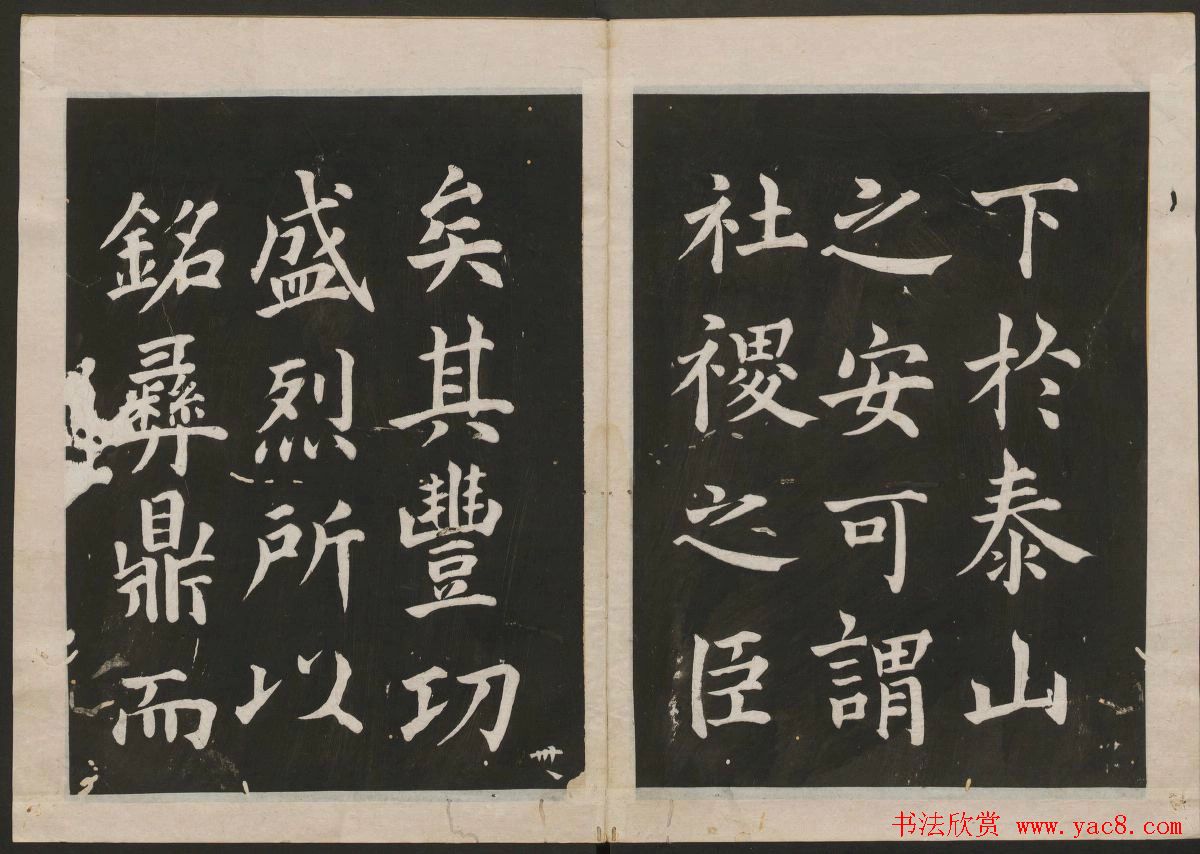 下於泰山
之安可謂
社稷之臣
矣其豐功
盛烈所以
銘彞鼎而
卌
书法欣赏 www.yac8.com